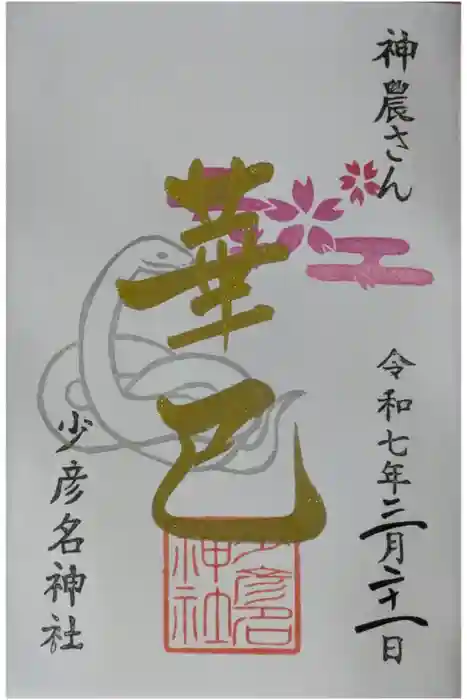 神農さん
令和七年三月二十一日
華巳
少彦名神社
少彦名神社